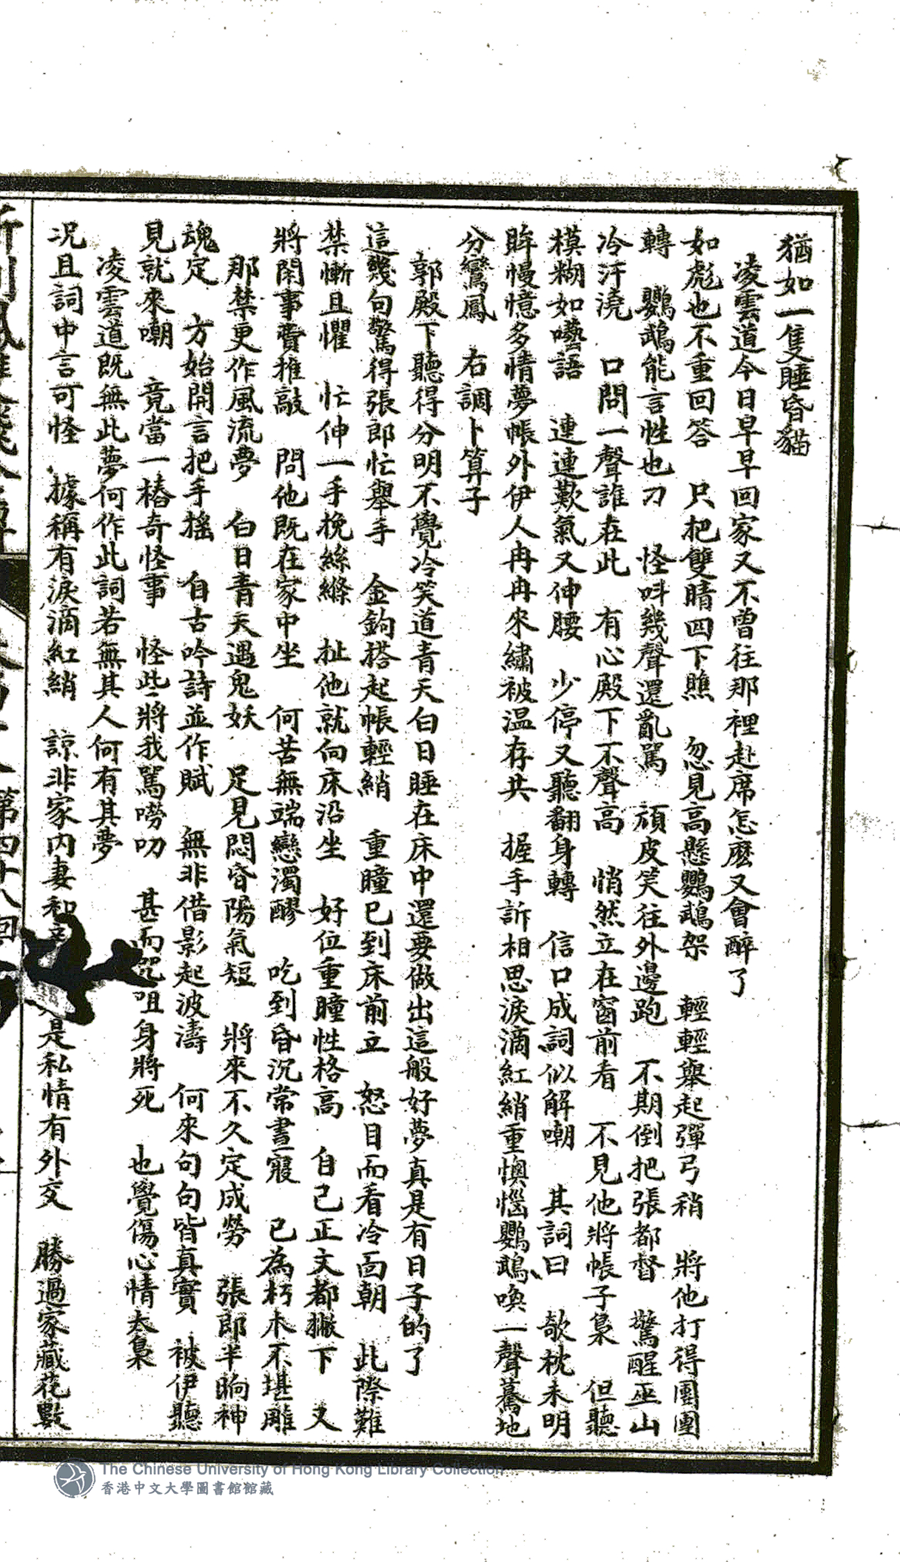 猶如一隻睡昏貓
凌雲道今日早早回家又不曾往那裡赴席怎麽又會醉了
如彪也不重回答 只把雙睛四下瞧 忽見高懸鸚鵡架 輕輕舉起彈弓稍 將他打得團團
轉 鸚鵡能言性也刁 怪呌幾聲還亂罵 頑皮笑往外邊跑 不期倒把張都督 驚醒巫山
冷汗澆 口問一聲誰在此 有心殿下不聲高 悄然立在窗前看 不見他將帳子梟 但聽
模糊如囈語 連連歎氣又伸腰 少停又聽翻身轉 信口成詞似解嘲 其詞曰 欹枕未明
眸慢憶多情夢帳外伊人冉冉來繡被温存共 握手訴相思淚滴紅綃重懊惱鸚鵡喚一聲驀地
分鸞鳳 右調卜算子
郭殿下聽得分明不覺冷笑道青天白日睡在床中還要做出這般好夢真是有日子的了
這幾句驚得張郎忙舉手 金鉤搭起帳輕綃 重瞳已到床前立 怒目而看冷面朝 此際難
禁慚且懼 忙伸一手挽絲縧 扯他就向床沿坐 好位重瞳性格高 自己正文都撇下 又
將閑事費推敲 問他既在家中坐 何苦無端戀濁醪 吃到昏沉常晝寢 已為朽木不堪雕
那禁更作風流夢 白日青天遇鬼妖 足見悶昏陽氣短 將來不久定成勞 張郎半晌神
魂定 方始開言把手搖 自古吟詩並作賦 無非借影起波濤 何來句句皆真實 被伊聽
見就來嘲 竟當一樁奇怪事 怪些將我罵嘮叨 甚而咒咀身將死 也覺傷心情太梟
凌雲道既無此夢何作此詞若無其人何有其夢
況且詞中言可怪 據稱有淚滴紅綃 諒非家內妻和 是私情有外交 勝過家藏花數
第四十八回
The Chinese University of Hong Kong Library Collection
香港中文大學圖書館館藏